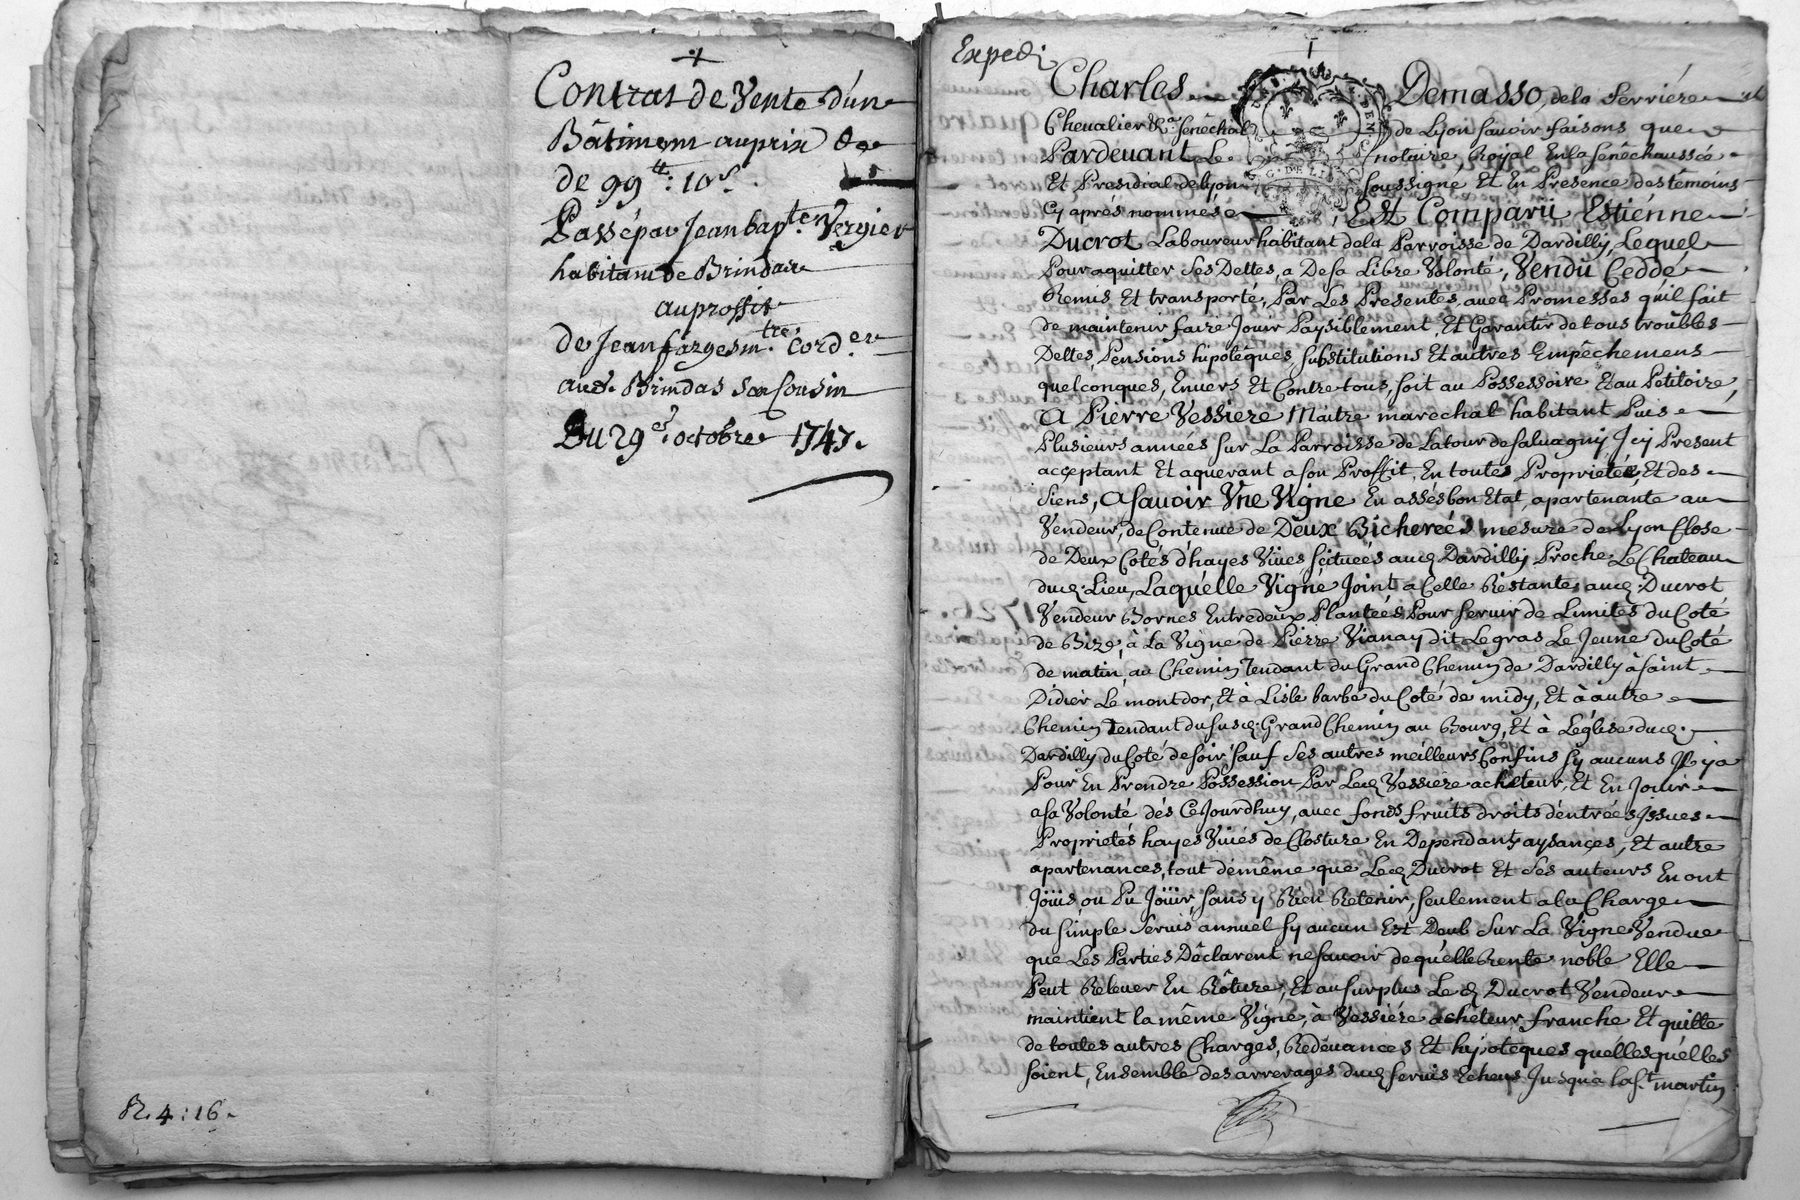 Contrat de Vente d'un
Bâtiment au prix
de 99 tt: 10 s.
Passé par Jean bapten Vergier
habitant de Brindas
au proffit
de Jean fargesm.tre Cord.er
aud. Brindas Son Cousin
Du 29e octobre 1747.
R. 4: 16.
Expedi
Charles Demasso, dela ferriére
Chevalier Senéchal de Lyon savoir faisons que
Pardevant Le notaire, Royal En la senéchaussée
Et Presidial de lyon soussigné, Et En Presence des temoins
Cy aprés nommés Est Comparû Estiénne
Ducrot Laboureur habitant dela Parroisse de Dardilly, Lequel
Pour aquitter Ses Dettes, a De sa Libre Volonté, Vendû Ceddé
Remis Et transporté, Par Les Presentes, avec Promesses qu'il fait
de maintenir faire Jouir Paysiblement, Et Garantir de tous troubles
Dettes, Pensions hipotêques, substitutions Et autres Empêchemens
quelconques, Envers Et Contre tous, soit au Possessoire Et au Petitoire,
A Pierre Vessiere Maitre marechal habitant Puis
Plusieurs années sur La Parroisse de Latour de salvagny, Icy Present
acçeptant Et aquerant a son Proffit, En toutes Proprietés, Et des
siens, A savoir Vne Vigne En assés bon Etat, apartenante au
Vendeur, de Contenue de Deux Bicherées mesure de Lyon Close
de Deux Cotés d'hayes Vives scituées aud. Dardilly Proche Le Chateau
dud. Lieu, Laquélle Vigne Joint a Celle Restante, aud. Ducrot
Vendeur Bornes Entredeux Plantées Pour servir de Limites du Coté
de Bize, à La Vigne de Pierre Vianay dit Le gras Le Jeune du Coté
de matin, au Chemin Tendant du Grand Chemin de Dardilly à saint
Didier Le montdor, Et à Lisle barbe du Coté de midy, Et à autre
Chemin Tendant du susd. Grand Chemin au Bourg, Et à L'église dud.
Dardilly du Coté de soir sauf Ses autres meilleurs Confins sy aucuns Il y a
Pour En Prendre Possession Par Led. Vessiére acheteur, Et En Jouir
a sa Volonté dés Cejourdhuy, avec fonds fruits droits d'entrées Issues
Proprietés hayes Vives de Closture En Dependant, aysançes, Et autre
apartenances, tout de même que Led. Ducrot Et Ses auteurs En ont
Joüis ou Pu Joüir, sans y Rien Retenir, seulement a la Charge
du simple Servis annuel sy aucun Est Deub Sur La Vigne Vendue
que Les Parties Déclarent ne savoir de quélle Rente noble Elle
Peut Relever En Rôture, Et au surplus Led. Ducrot Vendeur
maintient la même Vigne, à Vessiére achêteur franche Et quitte
de toutes autres Charges, Redevances Et hypoteques quélles qu'elles
soient, Ensemble des arrerages dud. servis Echeus Jusqu'a la s.t martin